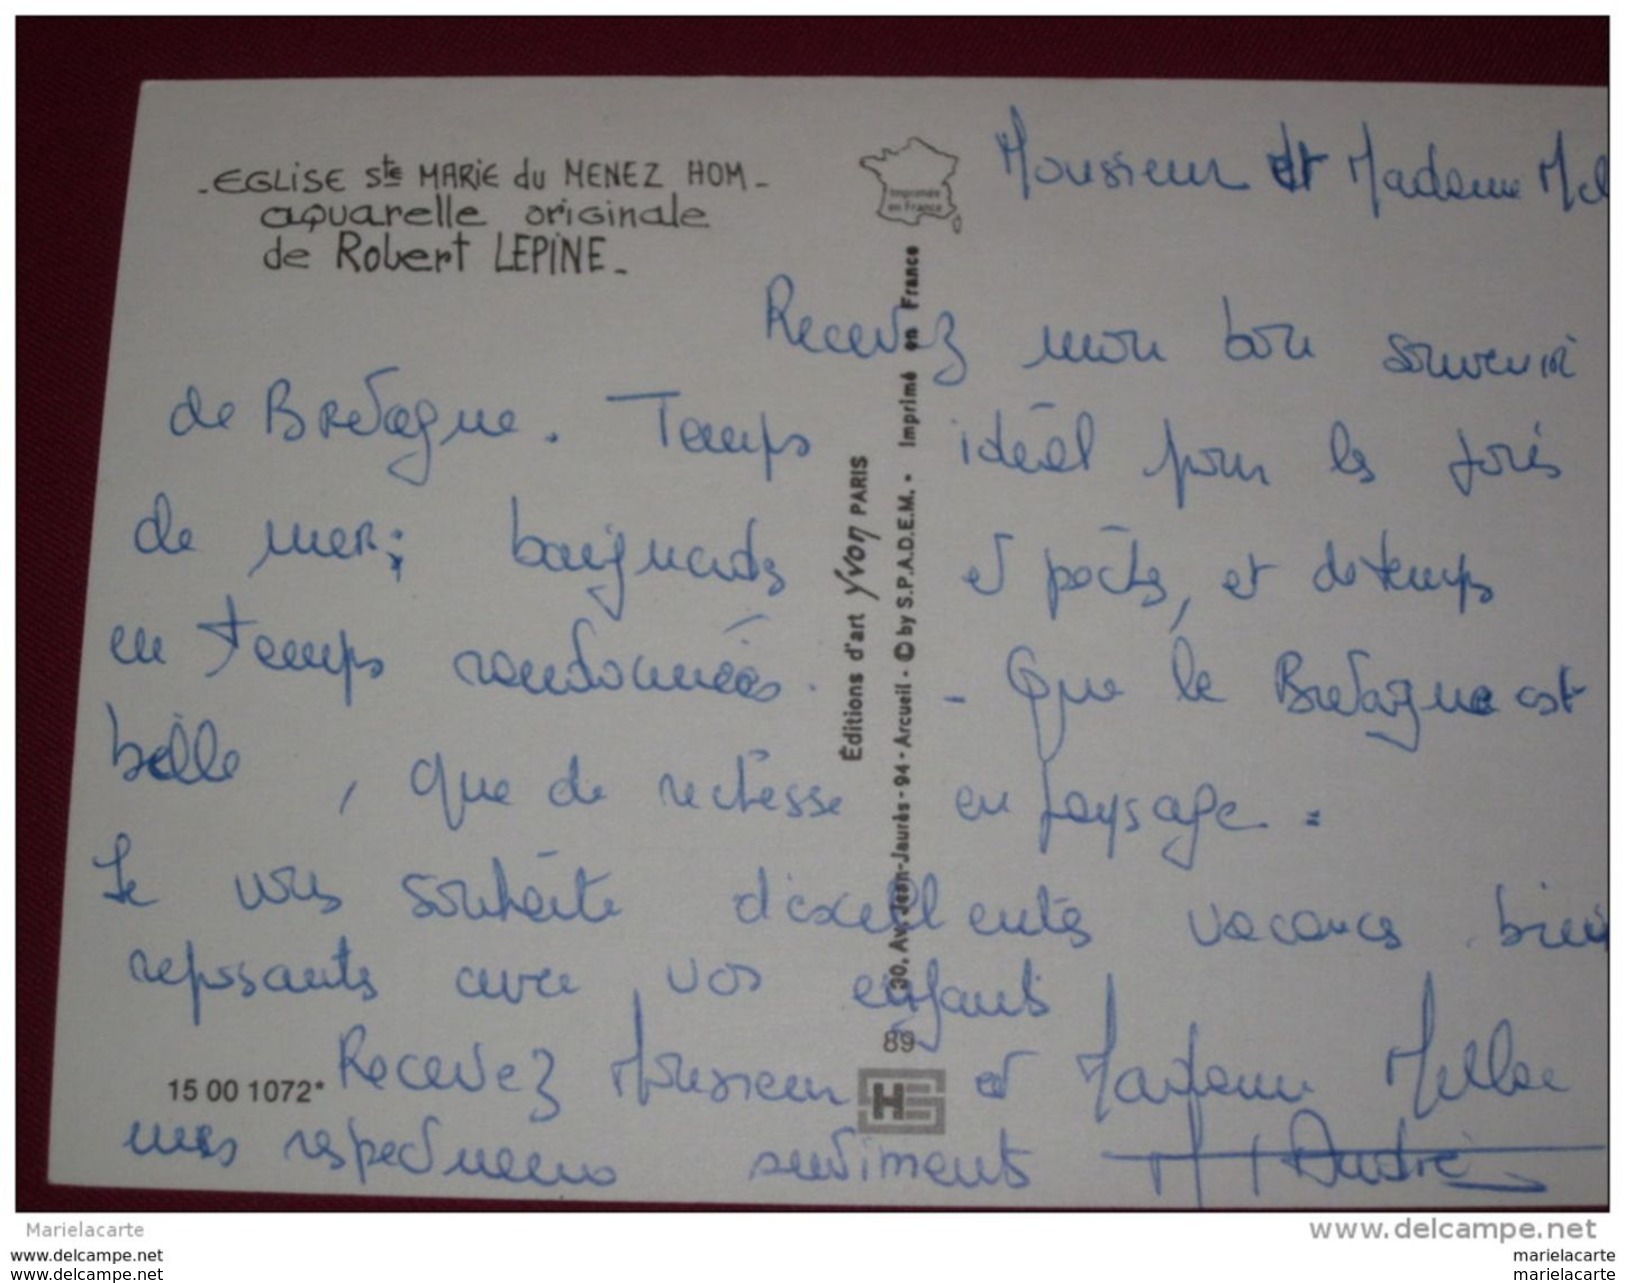 -EGLISE Ste MARIE du MENEZ HOM-
aquarelle originale
de Robert LEPINE-
Imprimée
en France
Monsieur et Madame Mel
Recevez mon bon souvenir
de Bretagne. Temps idéal pour les
de mer; baignades et
en temps randonnées. - Que la Bretagne est
belle, que de richesse en paysage.
Je vous souhaite d'excellentes vacances bien
reposantes avec vos enfants
Recevez Monsieur et Madame
mes respectueux sentiments
André
Éditions d'art Yvon PARIS
30, Av. Jean-Jaurès - 94 - Arcueil - © by S.P.A.D.E.M. • Imprimé en France
89
15 00 1072*
Marielacarte
www.delcampe.net
www.delcampe.com
www.delcampe.com
marielacarte
marielacarte